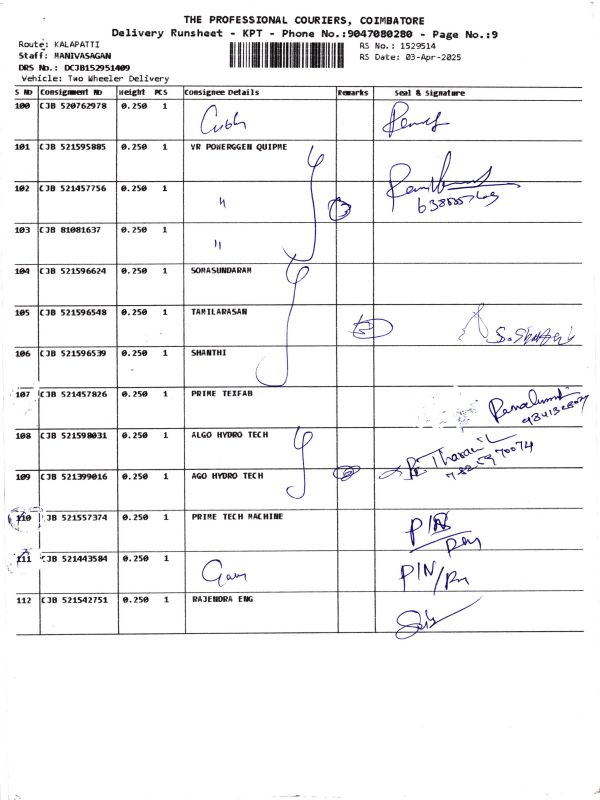 THE PROFESSIONAL COURIERS, COIMBATORE
Delivery Runsheet - KPT - Phone No.:9047080280 - Page No.:9
Route: KALAPATTI
RS No.: 1529514
Staff: MANIVASAGAN
RS Date: 03-Apr-2025
DRS No.: DCJB152951409
Vehicle: Two Wheeler Delivery
S NO Consignment NO Weight PCS Consignee Details Remarks Seal & Signature
100 CJB 520762978 0.250 1
101 CJB 521595885 0.250 1 VR POWERGGEN QUIPME
102 CJB 521457756 0.250 1 "
103 CJB 81081637 0.250 1 "
104 CJB 521596624 0.250 1 SOMASUNDARAM
105 CJB 521596548 0.250 1 TAMILARASAN
106 CJB 521596539 0.250 1 SHANTHI
107 CJB 521457826 0.250 1 PRIME TEXFAB
108 CJB 521598031 0.250 1 ALGO HYDRO TECH
109 CJB 521399016 0.250 1 AGO HYDRO TECH
110 CJB 521557374 0.250 1 PRIME TECH MACHINE
111 CJB 521443584 0.250 1 PIN/
112 CJB 521542751 0.250 1 RAJENDRA ENG